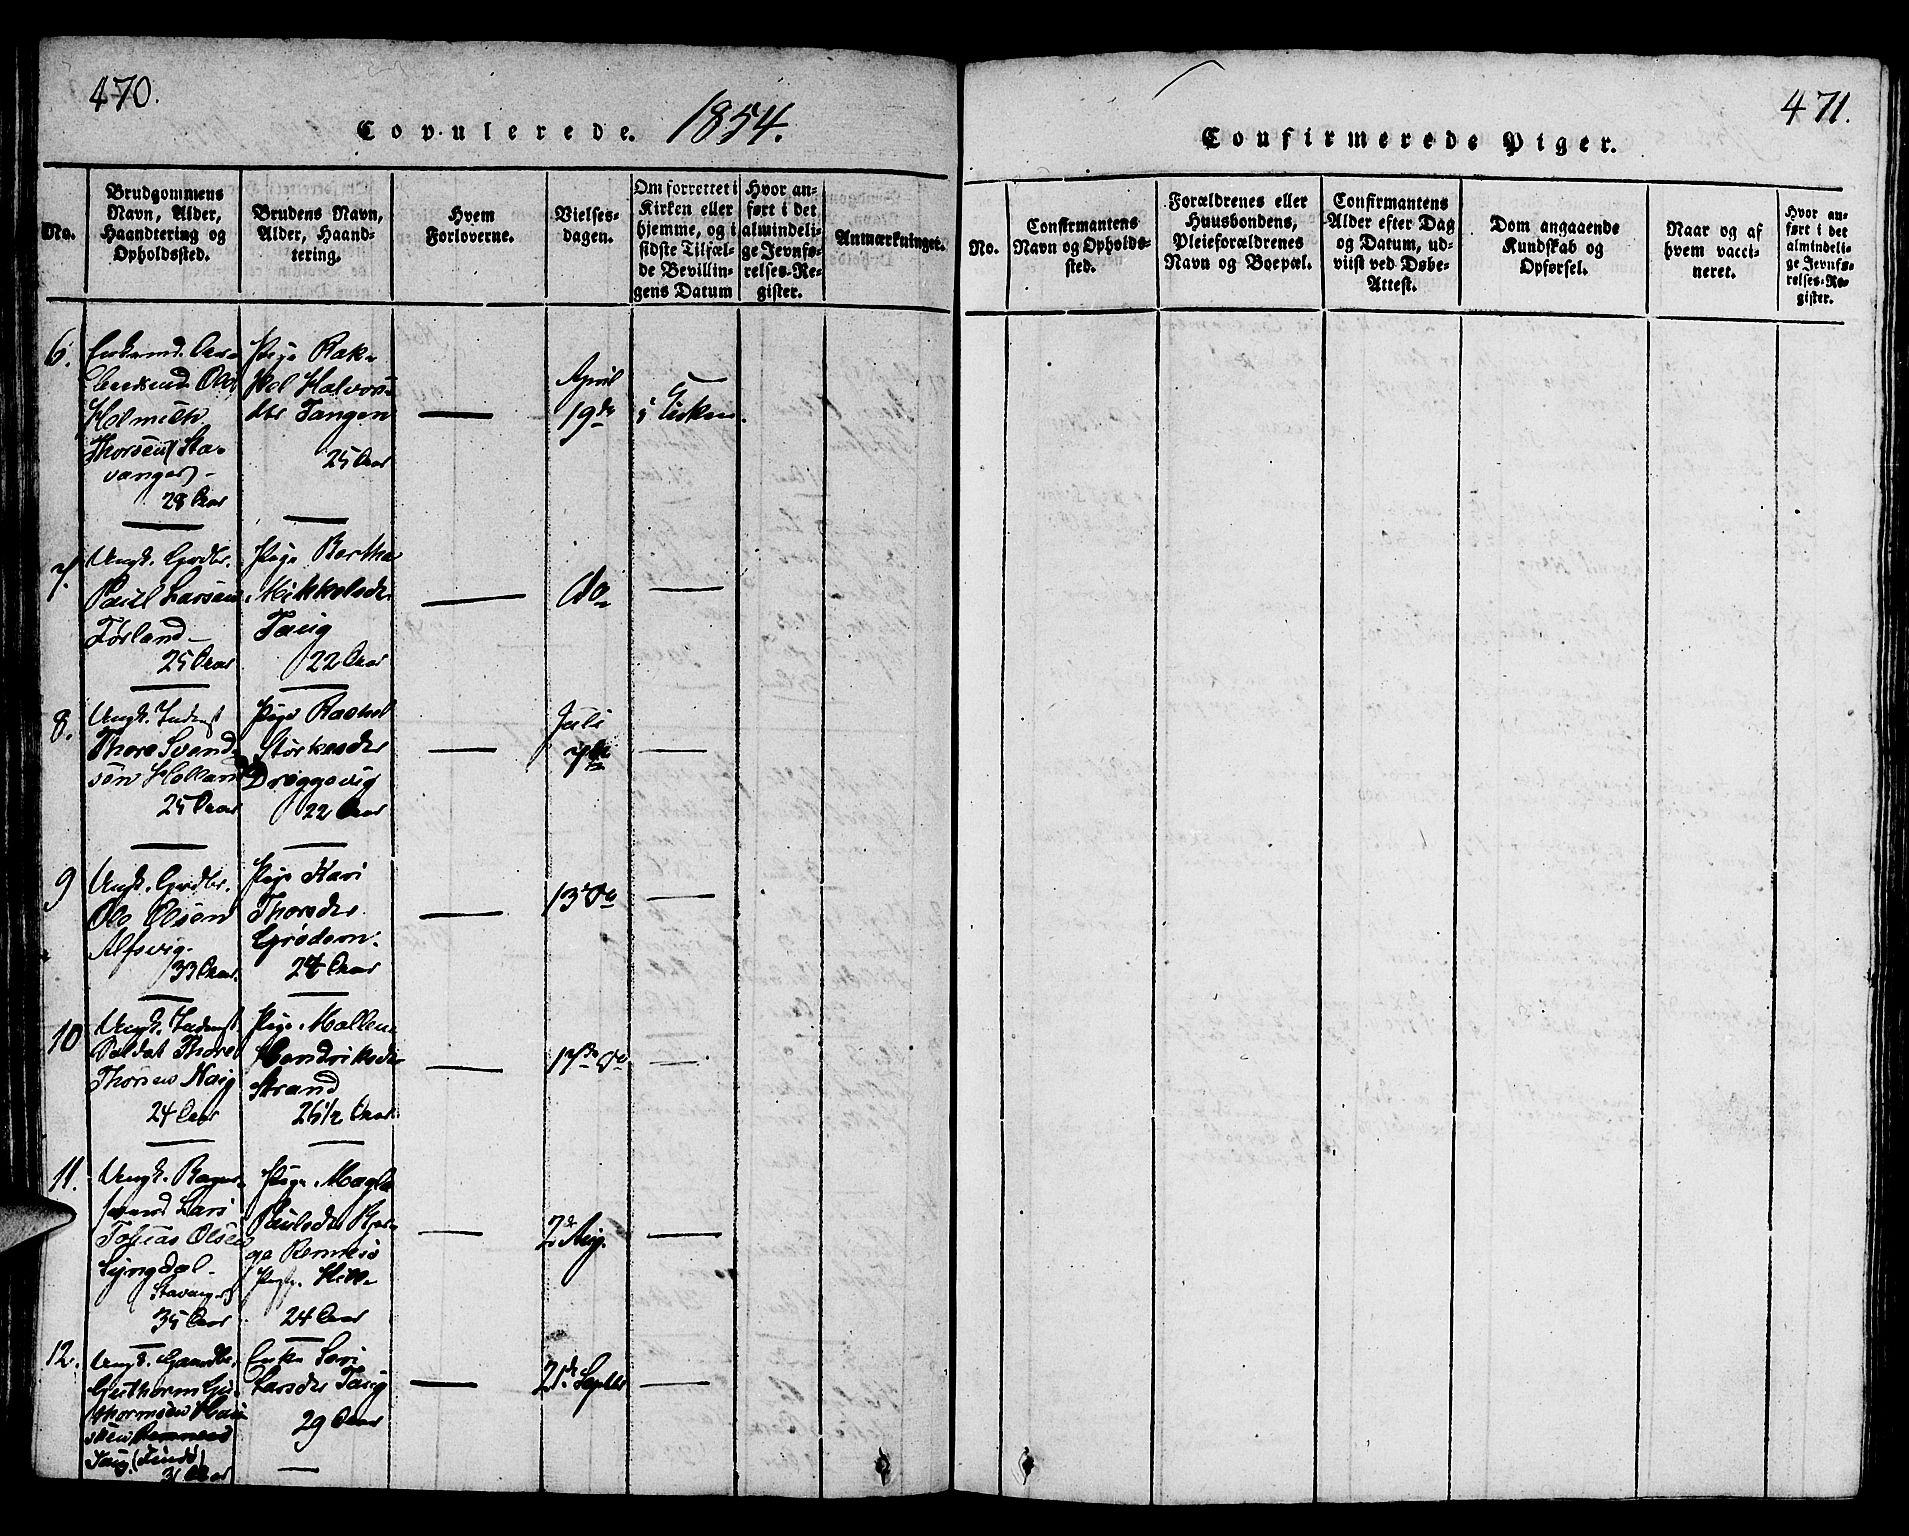 470.
Copulerede. 1854.
No.
Brudgommens
Navn, Alder,
Haandtering og
Opholdssted.
Brudens Navn,
Alder, Haand-
tering.
Hvem
Forloverne.
Vielses-
dagen.
Om forrettet i
Kirken eller
hjemme, og i
sidste Tilfæl-
de Bevillin-
gens Datum
Hvor an-
ført i det
almindeli-
ge Jevnfø-
relses-Re-
gister.
Anmærkninger.
6.
Enkemd.
Ole
Holmich
Thorsen (Sta-
vanger) -
28 Aar
Pige Rak-
kel Halvors-
dtr Tangen
25 Aar
April
19de
i Kirken.
7.
Ungk. Grdbr.
Paul Larsen
Førland
25 Aar
Pige Bertha
Mikkelsdr
Taug
22 Aar
do
8.
Ungk. Inderst
Thore Svend-
sen Helland
25 Aar
Pige Rachel
Størkesdr
Dreggevig
22 Aar
Juli
7de
9
Ungk. Grdbr.
Ole Olsen
Alfsvig.
33 Aar.
Pige Kari
Thoresdr
Grødem.
24 Aar
13 do
10
Ungk. Inderst
Soldat Thore
Thorsen Haig
24 Aar
Pige Mallene
Hendriksdr
Strand
26 1/2 Aar
17de do
11.
Ungk. Bager-
svend Lars
Tobias Olsen
Lyngdal -
Stavanger
35 Aar
Pige Magla
Paulsdr
Rennesø
24 Aar
2de Aug.
12.
Ungk. Gaardbr.
Guthorm Gu-
thormsen Hau-
sken Rennesø
Taug (Findø)
31 Aar
Enke Siri
Larsdr Taug
29 Aar
21de Septbr
471.
Confirmerede Piger.
No.
Confirmantens
Navn og Opholds-
sted.
Forældrenes eller
Huusbondens,
Pleieforældrenes
Navn og Boepæl.
Confirmantens
Alder efter Dag
og Datum, ud-
viist ved Døbe-
Attest.
Dom angaaende
Kundskab og
Opførsel.
Naar og af
hvem vacci-
neret.
Hvor an-
ført i det
almindeli-
ge Jevnfø-
relses-Re-
gister.